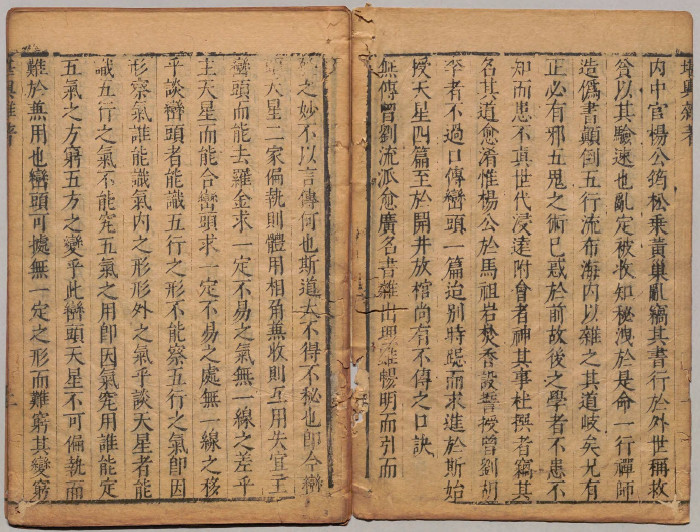 堪輿雜著
內中官楊公筠松乘黃巢亂竊其書行於外世稱救
貧以其驗速也亂定被收知秘洩於是命一行禪師
造僞書顛倒五行流布海內以雜之其道岐矣兄有
正必有邪五鬼之術已裁於前故後之學者不患不
知而患不真世代浸遠附會者神其事杜撰者竊其
名其道愈淆惟楊公於馬祖岩焚香設誓授曾劉胡
卒者不過口傳巒頭一篇迨別時跽而求進於斯始
授天星四篇至於開井放棺尚有不傳之口訣
無傳曾劉流派愈廣名書雜出與難暢明而引而
之妙不以言傳何也斯道大不得不秘也卽今巒
頭天星二家偏執則體用相角兼收則互用失宜主
巒頭而能去羅金求一定不易之氣無一線之差乎
主天星而能合巒頭求一定不易之處無一線之移
乎談巒頭者能識五行之形不能察五行之氣卽因
形察氣誰能識氣內之形形外之氣乎談天星者能
識五行之氣不能究五氣之用卽因氣究用誰能定
五氣之方窮五方之變乎此巒頭天星不可偏執而
難於兼用也巒頭可據無一定之形而難窮其變窮
堪輿雜著